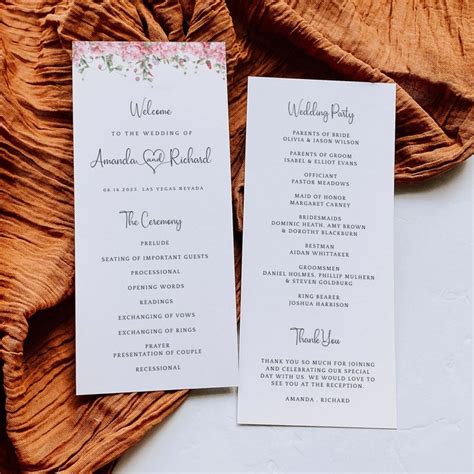 Welcome
TO THE WEDDING OF
Amanda and Richard
08.16.2023. LAS VEGAS NEVADA
The Ceremony
PRELUDE
SEATING OF IMPORTANT GUESTS
PROCESSIONAL
OPENING WORDS
READINGS
EXCHANGING OF VOWS
EXCHANGING OF RINGS
PRAYER
PRESENTATION OF COUPLE
RECESSIONAL
Wedding Party
PARENTS OF BRIDE
OLIVIA & JASON WILSON
PARENTS OF GROOM
ISABEL & ELLIOT EVANS
OFFICIANT
PASTOR MEADOWS
MAID OF HONOR
MARGARET CARNEY
BRIDESMAIDS
DOMINIC HEATH, AMY BROWN
& DOROTHY BLACKBURN
BESTMAN
AIDAN WHITTAKER
GROOMSMEN
DANIEL HOLMES, PHILLIP MULHERN
& STEVEN GOLDBURG
RING BEARER
JOSHUA HARRISON
Thank You
THANK YOU SO MUCH FOR JOINING
AND CELEBRATING OUR SPECIAL
DAY WITH US. WE WOULD LOVE TO
SEE YOU AT THE RECEPTION.
AMANDA . RICHARD